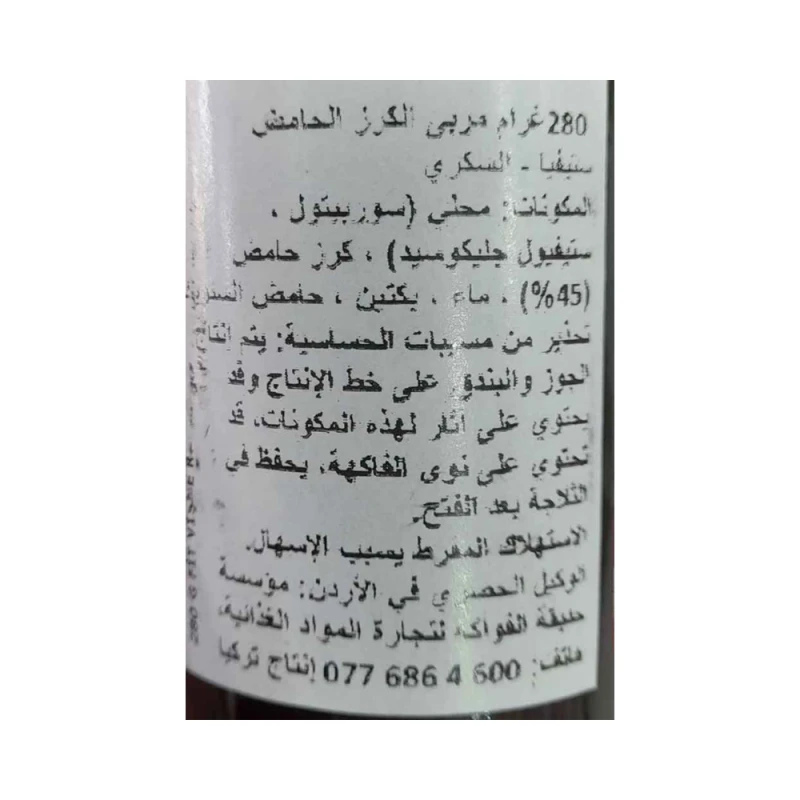 280 غرام مربى الكرز الحامض
ستيفيا - السكري
المكونات: محلي (سوربيتول ،
ستيفيول جليكوسيد) ، كرز حامض
(45%) ، ماء ، بكتين ، حامض
تحذير من مسببات الحساسية: يتم
الجوز والبندق على خط الإنتاج وقد
يحتوي على آثار لهذه المكونات، قد
تحتوي على نوى الفاكهة، يحفظ في
الثلاجة بعد الفتح.
الاستهلاك المفرط يسبب الإسهال.
الوكيل الحصري في الأردن: مؤسسة
الفواكه لتجارة المواد الغذائية،
هاتف: 600 4 686 077 إنتاج تركيا